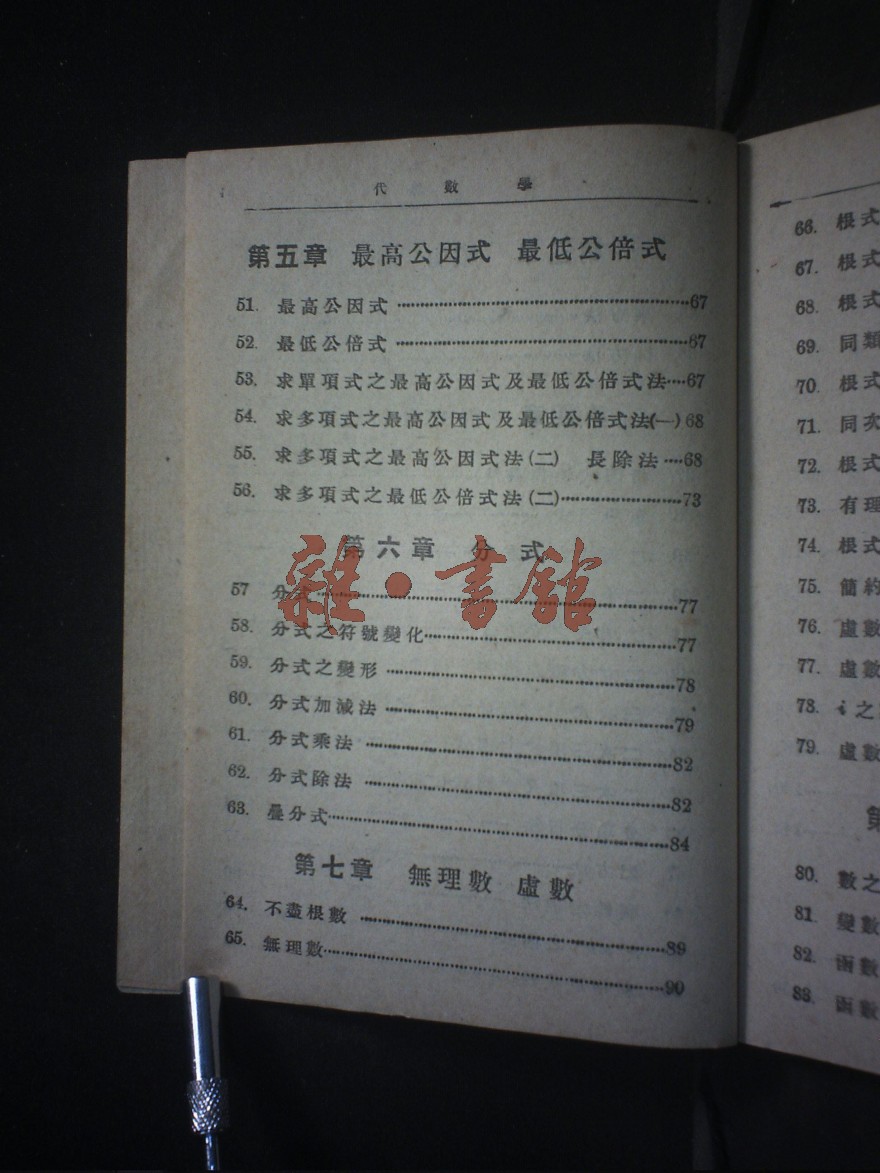 代數學
第五章 最高公因式 最低公倍式
51. 最高公因式 ……………67
52. 最低公倍式 ……………67
53. 求單項式之最高公因式及最低公倍式法……67
54. 求多項式之最高公因式及最低公倍式法(一) 68
55. 求多項式之最高公因式法(二) 長除法……68
56. 求多項式之最低公倍式法(二)……………73
第六章 分式
57 分式……………77
58. 分式之符號變化……………77
59. 分式之變形……………78
60. 分式加減法……………79
61. 分式乘法……………82
62. 分式除法……………82
63. 疊分式……………84
第七章 無理數 虛數
64. 不盡根數……………89
65. 無理數……………90
雜·書館
66. 根式
67. 根式
68. 根式
69. 同類
70. 根式
71. 同次
72. 根式
73. 有理
74. 根式
75. 簡約
76. 虛數
77. 虛數
78. i之
79. 虛數
第
80. 數之
81. 變數
82. 函數
83. 函數